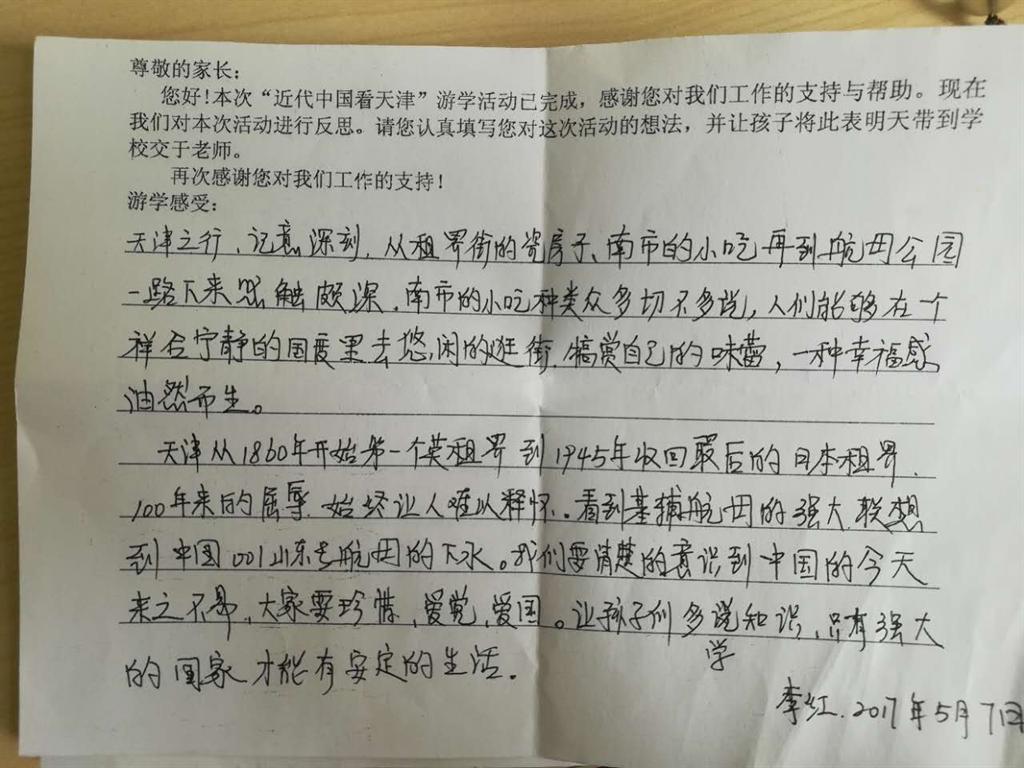 尊敬的家长：
您好！本次“近代中国看天津”游学活动已完成，感谢您对我们工作的支持与帮助。现在
我们对本次活动进行反思。请您认真填写您对这次活动的想法，并让孩子将此表明天带到学
校交于老师。
再次感谢您对我们工作的支持！
游学感受：
天津之行、记忆深刻，从租界街的瓷房子、南市的小吃再到航母公园
一路下来感触颇深．南市的小吃种类众多切不多说，人们能够在一个
祥合宁静的国度里去悠闲的逛街．犒赏自己的味蕾，一种幸福感
油然而生。
天津从1860年开始第一个英租界到1945年收回最后的日本租界．
100年来的屈辱．始终让人难以释怀。看到基辅航母的强大联想
到中国001山东号航母的下水。我们要清楚的意识到中国的今天
来之不易，大家要珍惜，爱党，爱国。让孩子们多说知识，只有强大
学
的国家才能有安定的生活．
李红．2017年5月7日